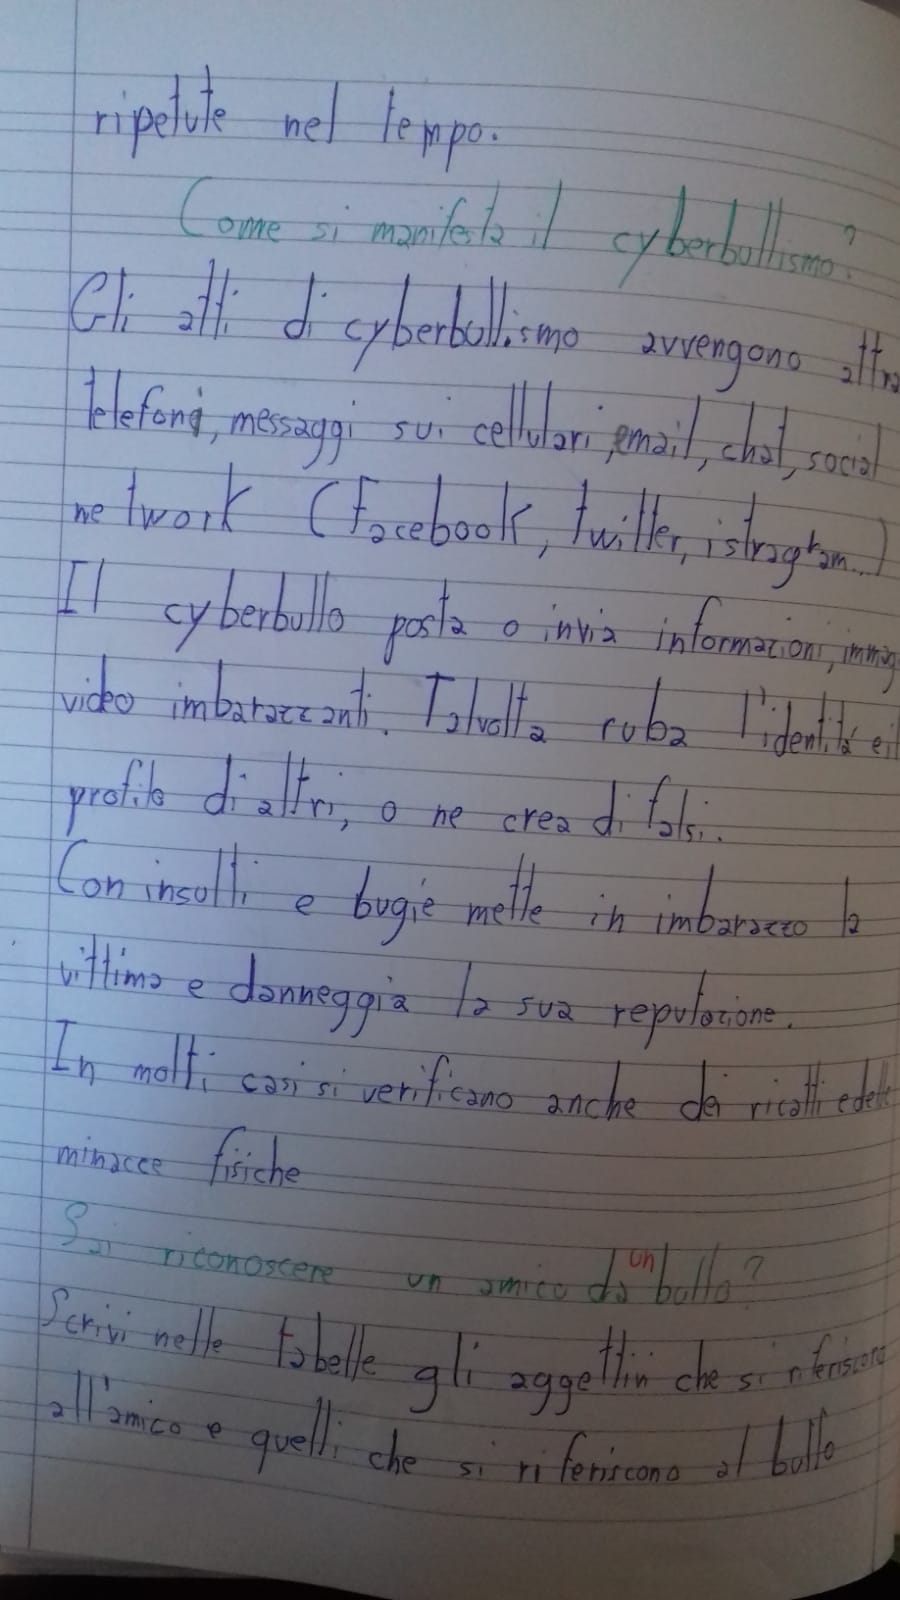 ripetute nel tempo.
Come si manifesta il cyberbullismo?
Gli atti di cyberbullismo avvengono attra
telefoni, messaggi sui cellulari, email, chat, social
network (Facebook, twitter, istragram...)
Il cyberbullo posta o invia informazioni, immag
video imbarazzanti. Talvolta ruba l'identità e il
profilo di altri, o ne crea di falsi.
Con insulti e bugie mette in imbarazzo la
vittima e danneggia la sua reputazione.
In molti casi si verificano anche dei ricatti e delle
minacce fisiche
Sai riconoscere un amico da un bullo?
Scrivi nelle tabelle gli aggettivi che si riferiscono
all'amico e quelli che si riferiscono al bullo